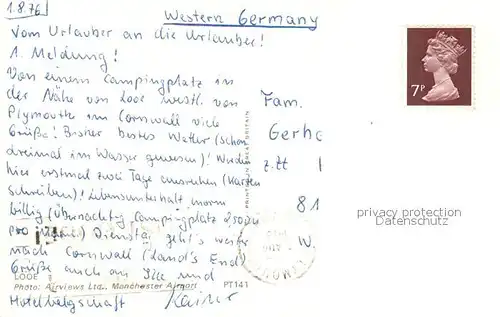 1.8.76
Western Germany
Vom Urlauber an die Urlauber!
1. Meldung!
Von einem Campingplatz in
der Nähe von Looe westl. von
Plymouth im Cornwall viele
Grüße! Bisher bestes Wetter (schon
dreimal im Wasser gewesen)! Wurden
hier erstmal zwei Tage ausruhen (Karten
schreiben)! Lebensunterhalt enorm
billig (Übernachtg Campingplatz
pro) Dienstag geht's weiter
nach Cornwall (Land's End)
Grüße auch an und
Hotelbelgschaft
LOOE
Photo: Airviews Ltd., Manchester Airport PT141
PRINTED IN GREAT BRITAIN
7P
Fam.
Gerh
z.Zt
81
W.
privacy protection
Datenschutz